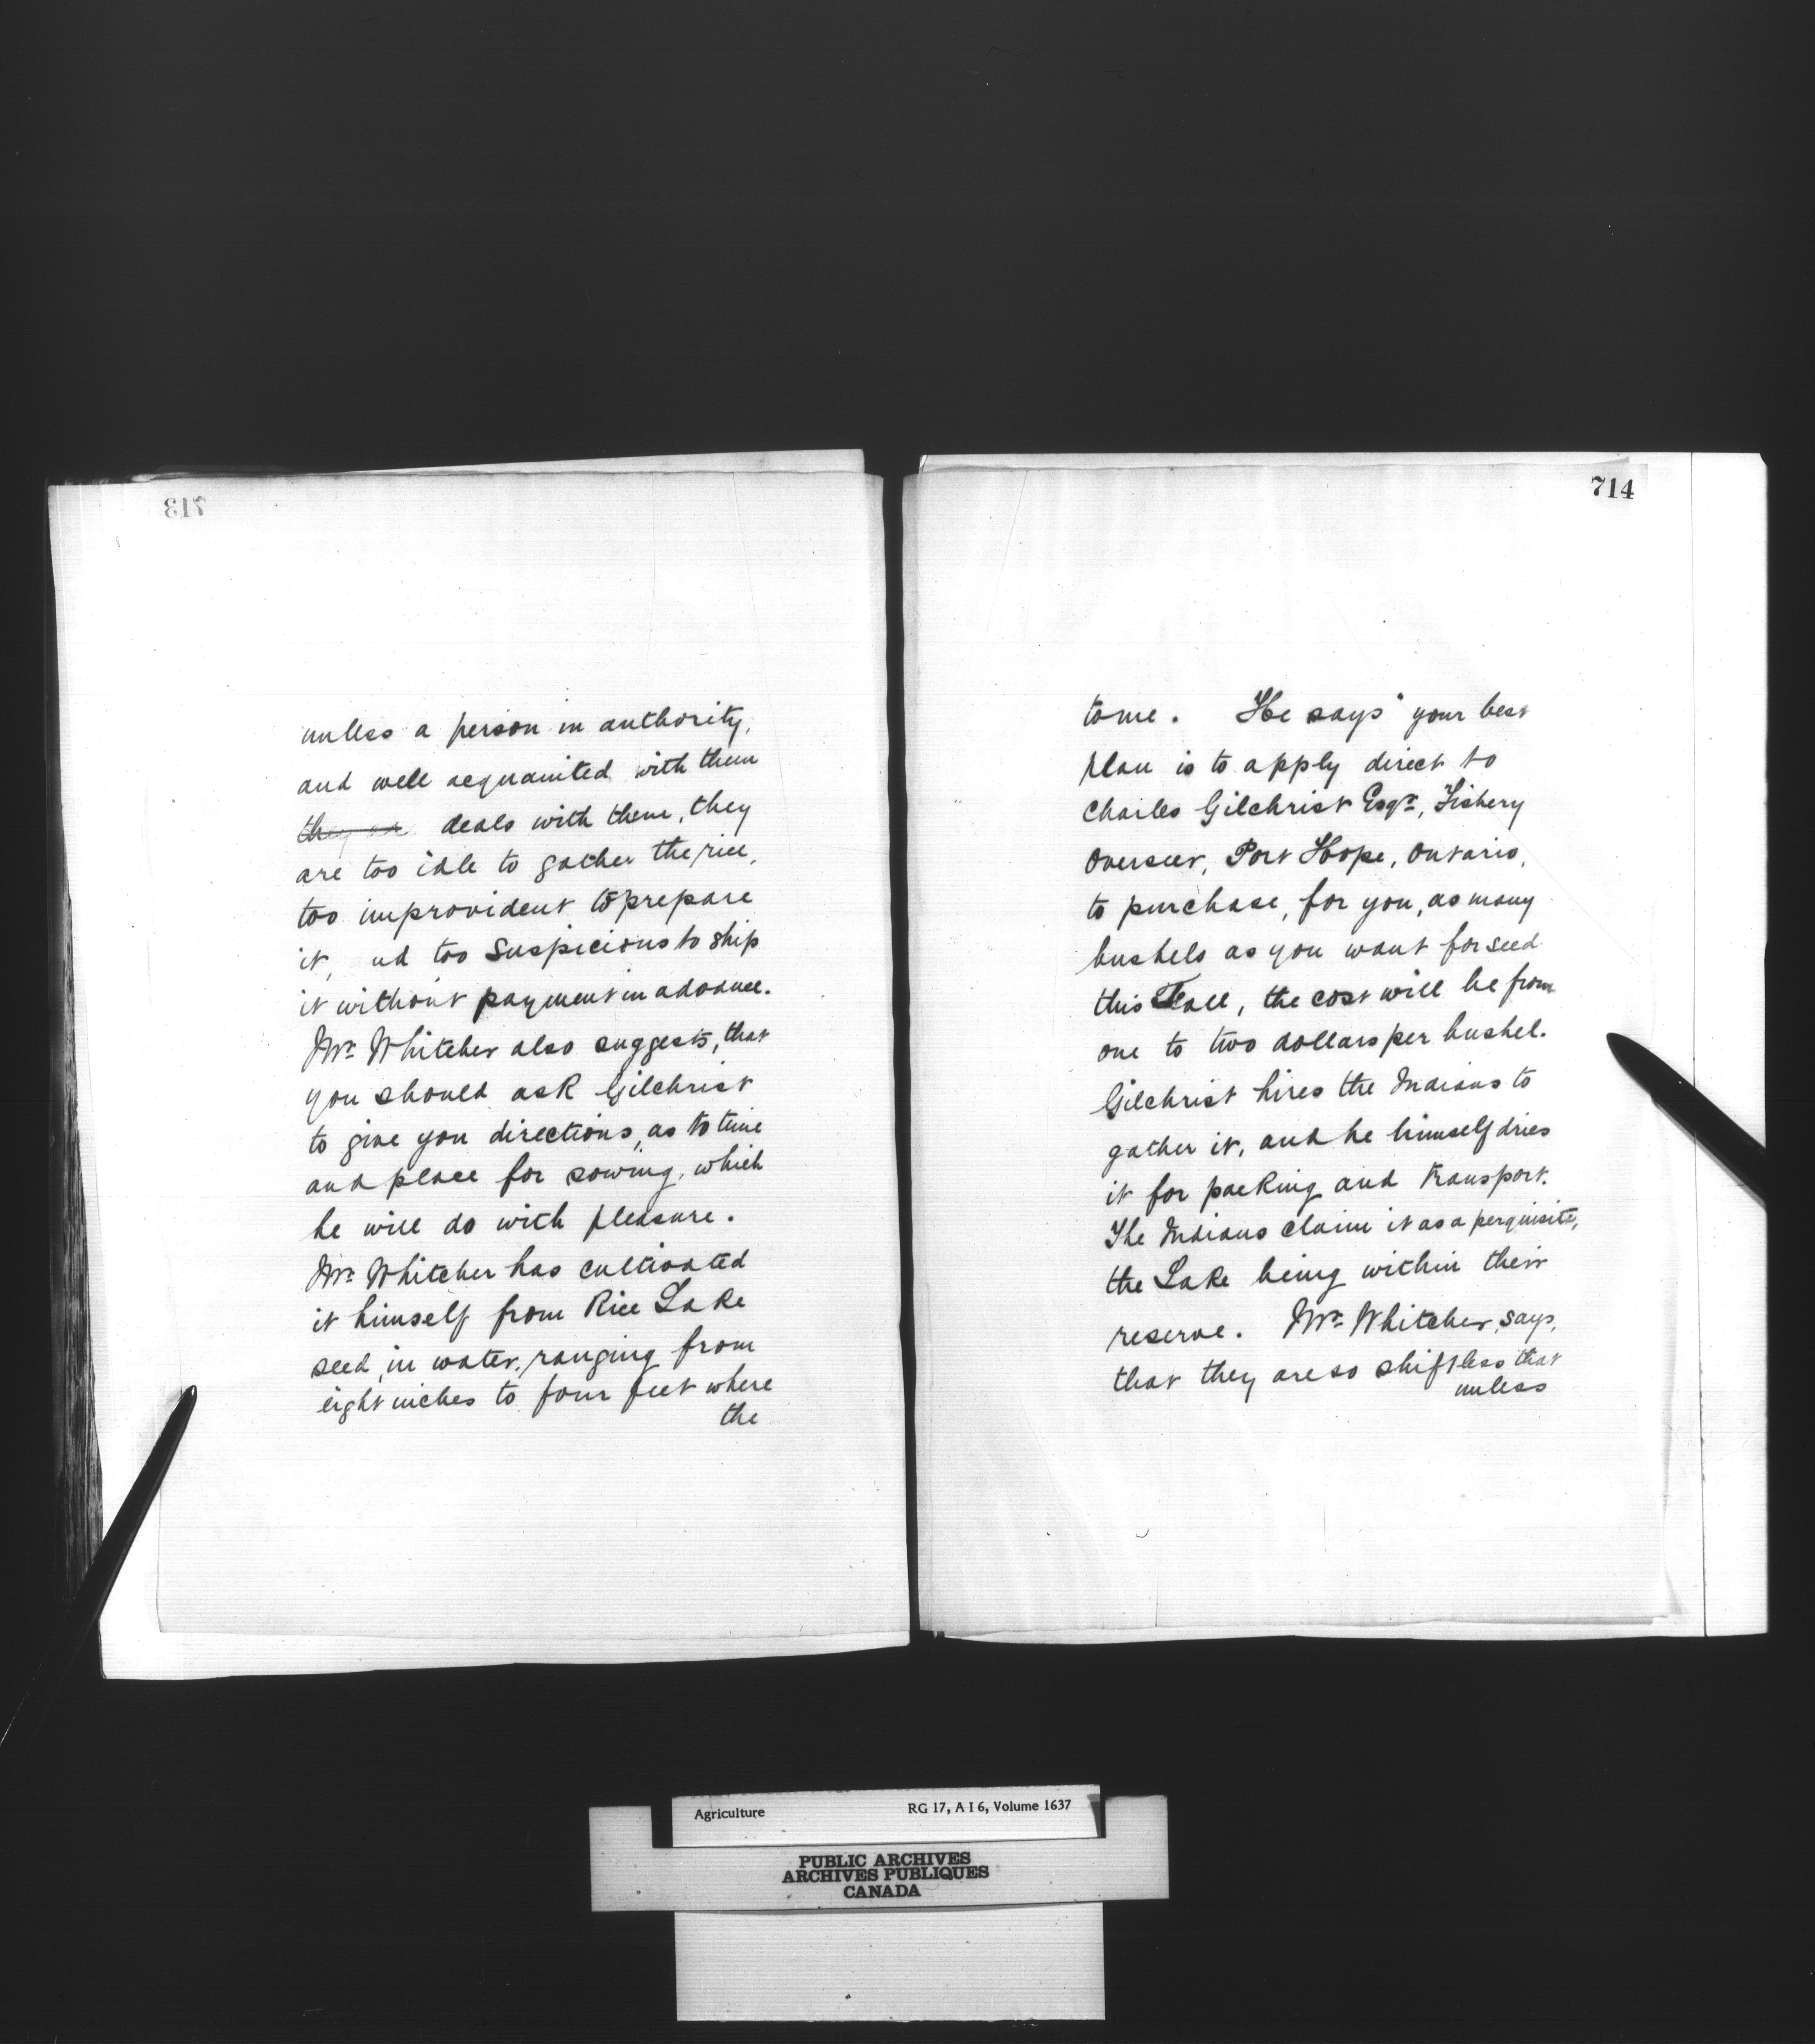 713
unless a person in authority,
and well acquainted with them
deals with them, they
are too idle to gather the rice,
too improvident to prepare
it, nd too suspicious to ship
it without payment in advance.
Mr. Whitcher also suggests, that
you should ask Gilchrist
to give you directions, as to time
and place for sowing, which
he will do with pleasure.
Mr. Whitcher has cultivated
it himself from Rice Lake
seed, in water, ranging from
eight inches to four feet where
the
714
to me. He says "your best
plan is to apply direct to
Charles Gilchrist Esqr., Fishery
Overseer, Port Hope, Ontario,
to purchase, for you, as many
bushels as you want for seed
this Fall, the cost will be from
one to two dollars per bushel.
Gilchrist hires the Indians to
gather it, and he himself dries
it for packing and transport.
The Indians claim it as a perquisite,
the Lake being within their
reserve. Mr. Whitcher, says,
that they are so shiftless that
unless
Agriculture RG 17, A I 6, Volume 1637
PUBLIC ARCHIVES
ARCHIVES PUBLIQUES
CANADA